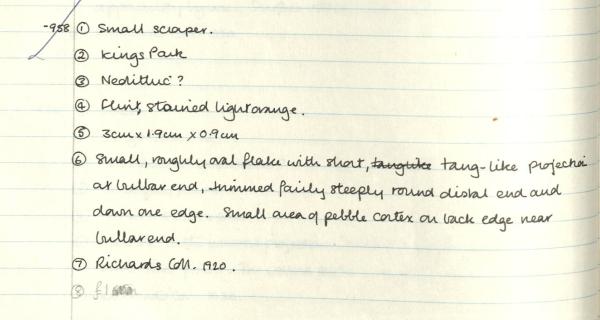 -958 ① Small scraper.
② Kings Park
③ Neolithic?
④ Flint, stained light orange.
⑤ 3cm x 1.9cm x 0.9cm
⑥ Small, roughly oval flake with short, tanglike tang-like projection
at bulbar end, trimmed fairly steeply round distal end and
down one edge. Small area of pebble cortex on back edge near
bulbar end.
⑦ Richards Coll. 1920.
⑧